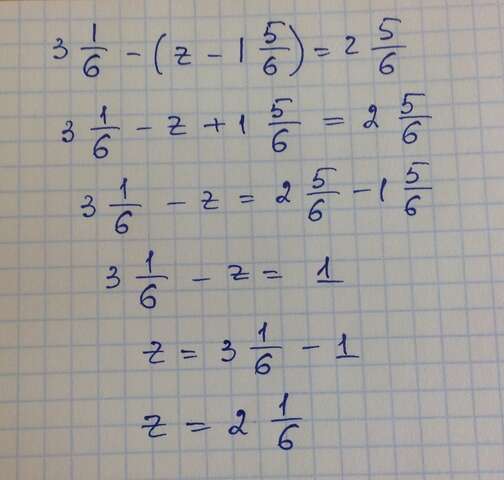 3 1/6 - (z - 1 5/6) = 2 5/6
3 1/6 - z + 1 5/6 = 2 5/6
3 1/6 - z = 2 5/6 - 1 5/6
3 1/6 - z = 1
z = 3 1/6 - 1
z = 2 1/6